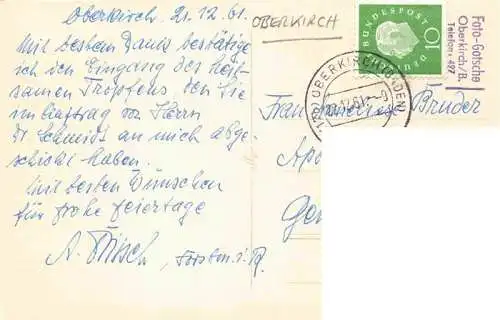 Oberkirch 21.12.61.
Mit bestem Dank bestätige
ich den Eingang des heil-
samen Tropfens, den Sie
im Auftrag von Herrn
Dr. Schmidt an mich abge-
schickt haben.
Mit besten Wünschen
für frohe Feiertage
A. Forstm. i. R.
OBERKIRCH
DEUTSCHE BUNDESPOST
10
OBERKIRCH (BADEN)
Foto-Götsche
Oberkirch/B.
Telefon: 487
Frau Bruder
Apo
Gen